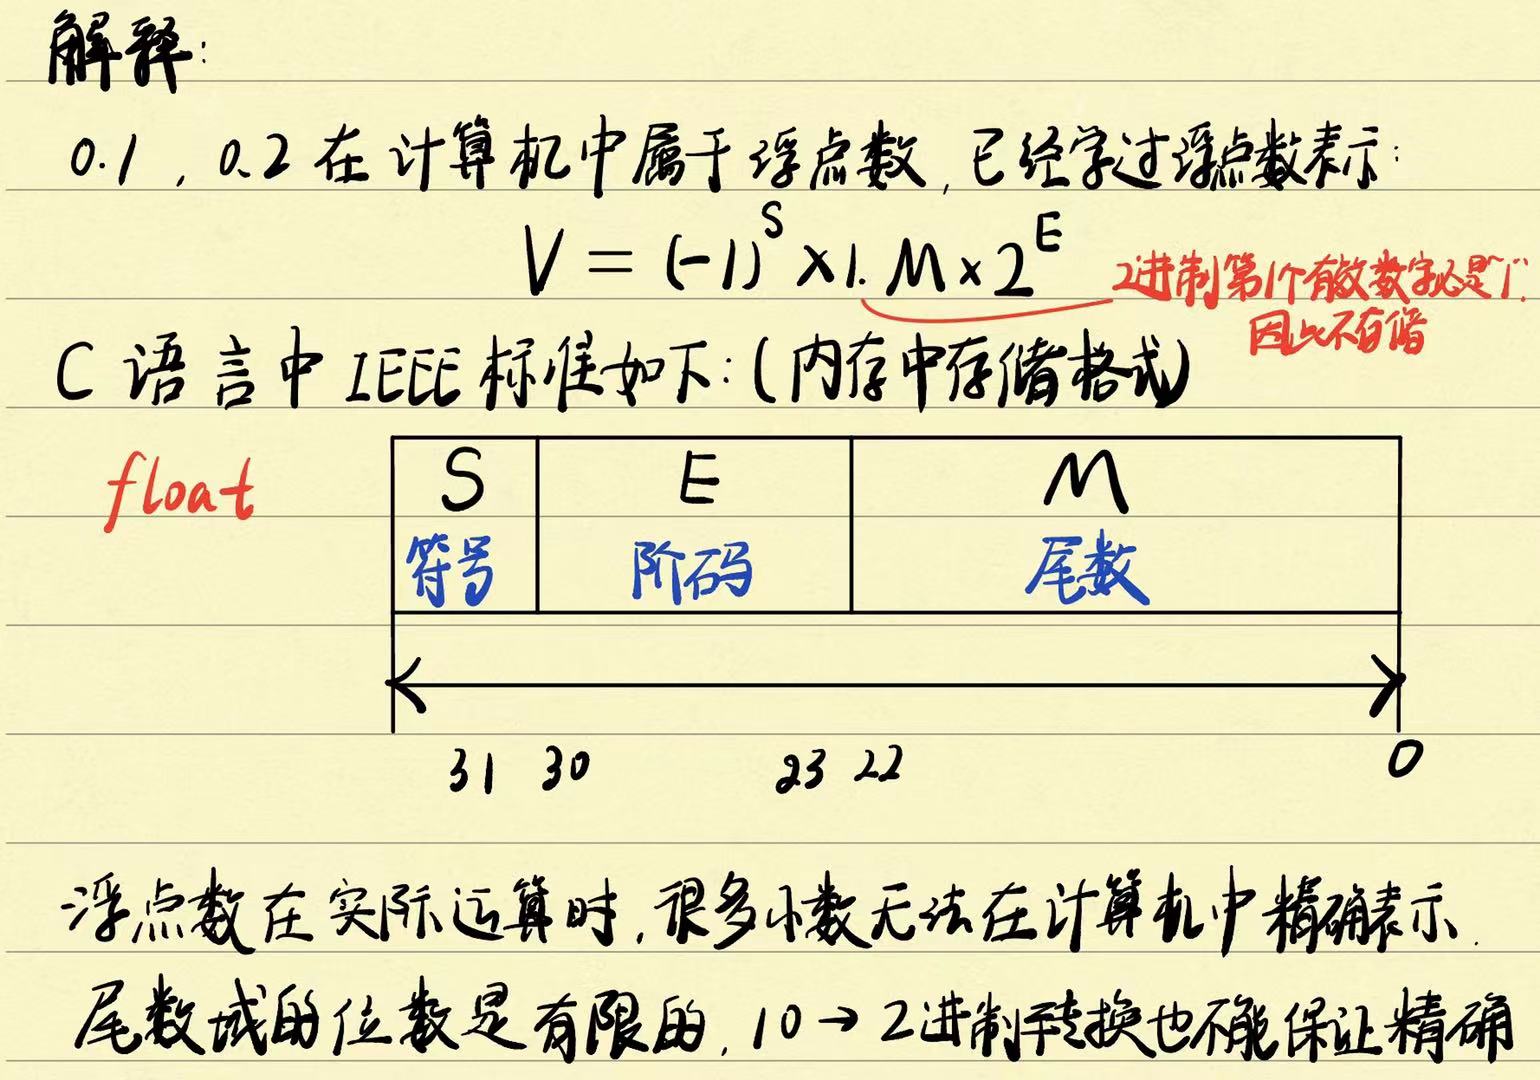 解释:
0.1，0.2在计算机中属于浮点数，已经学过浮点数表示:
V = (-1)^S ×1.M×2^E
2进制第1个有效数字必是"1"
因此不存储
C语言中IEEE标准如下:(内存中存储格式)
float
S E M
符号 阶码 尾数
31 30 23 22 0
浮点数在实际运算时，很多小数无法在计算机中精确表示.
尾数域的位数是有限的，10→2进制转换也不能保证精确